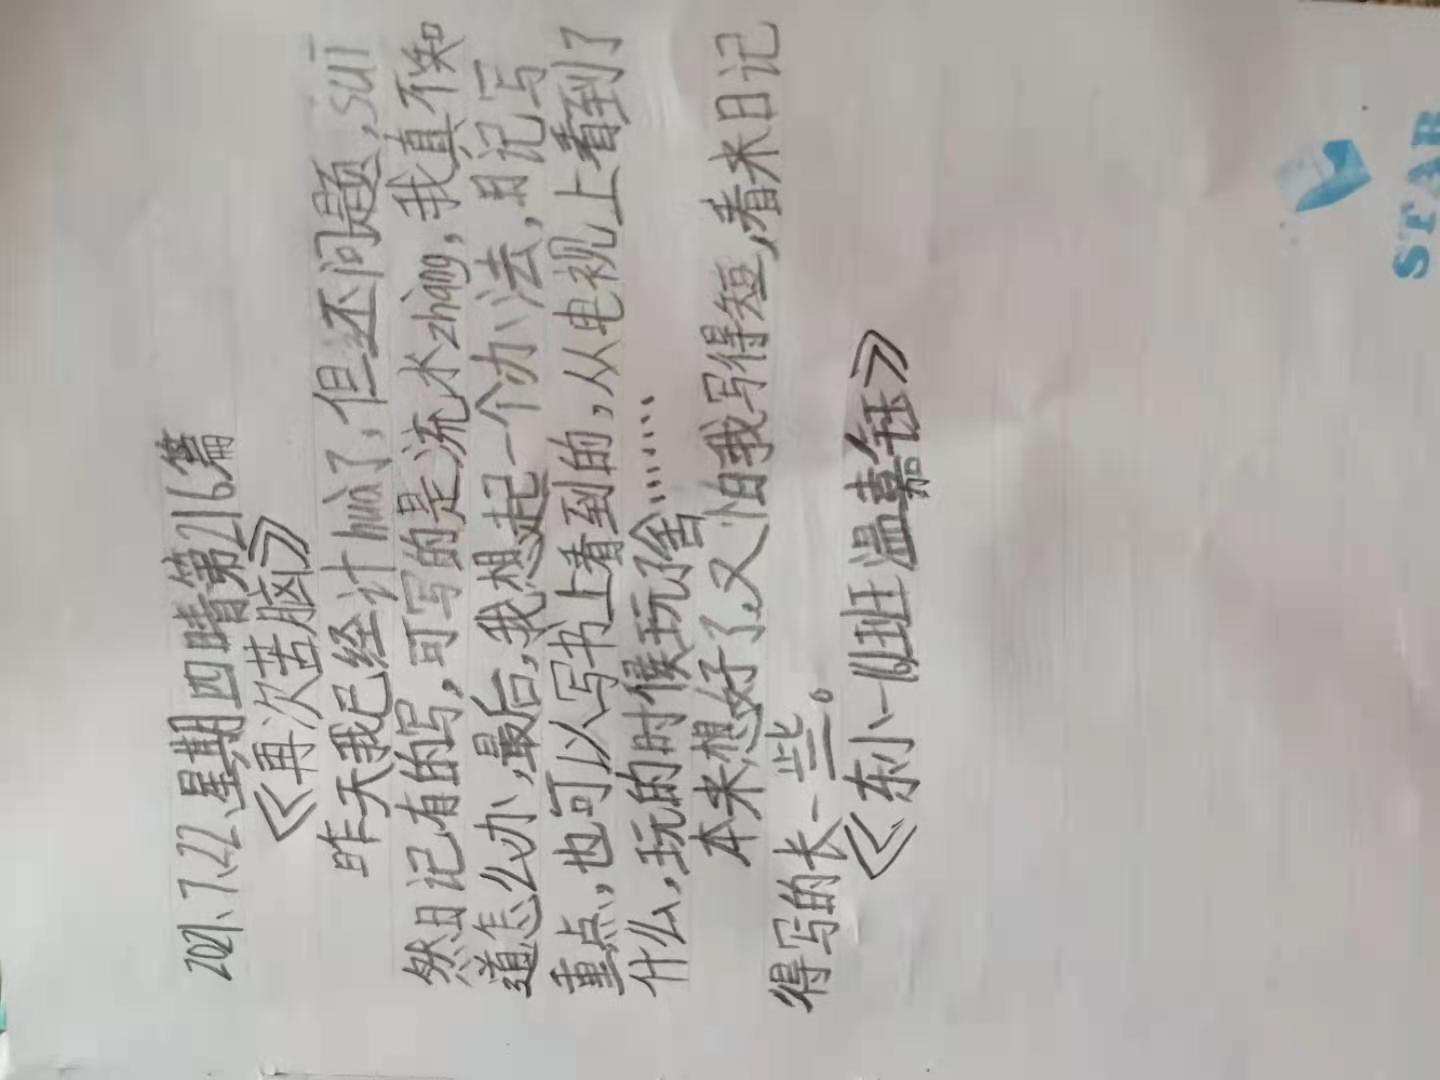 2021、7、22、星期四晴第216篇
《再次苦脑》
昨天我已经计huà了,但还不问题,suī
然日记有的写,可写的是流水zhàng,我真不知
道怎么办,最后,我想起一个办法,日记写
重点,也可以写书上看到的,从电视上看到了
什么,玩的时候玩啥………
本来想好了,又怕我写得短,看来日记
得写的长一些。
《东小一(6)班温嘉钰》
STAR